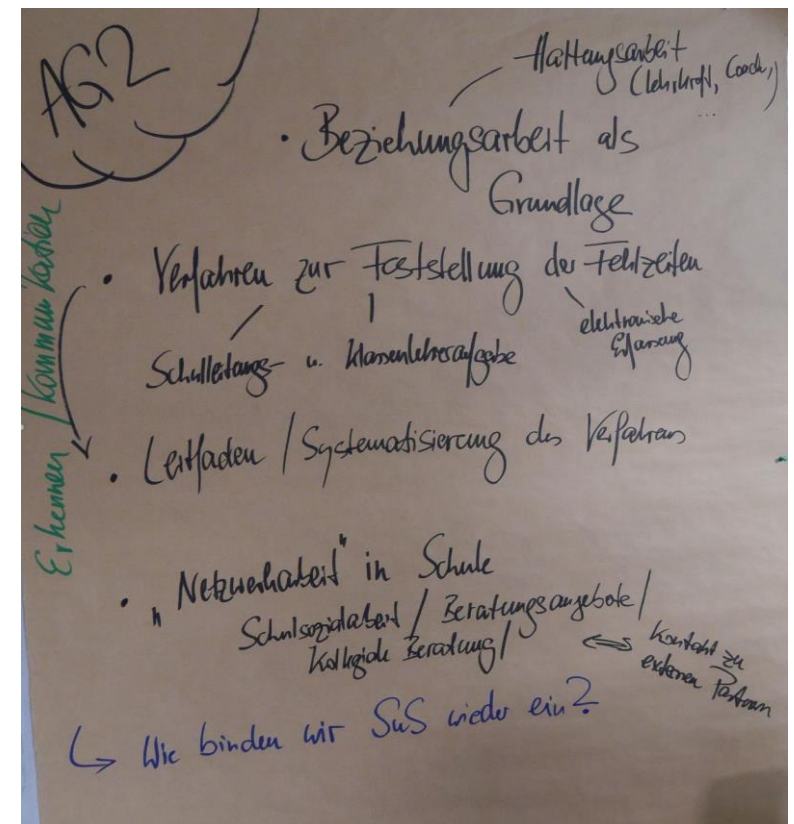 AG2
Haltungsarbeit
(Lehrkraft, Coach,)
...
• Beziehungsarbeit als
Grundlage
• Verfahren zur Feststellung der Fehlzeiten
elektronische
Erfassung
Schulleitungs- u. Klassenlehreraufgabe
Erkennen / Kommunikation
• Leitfaden / Systematisierung des Verfahrens
• "Netzwerkarbeit" in Schule
Schulsozialarbeit / Beratungsangebote /
Kollegiale Beratung /
⇔ Kontakt zu
externen Partnern
↳ Wie binden wir SuS wieder ein?